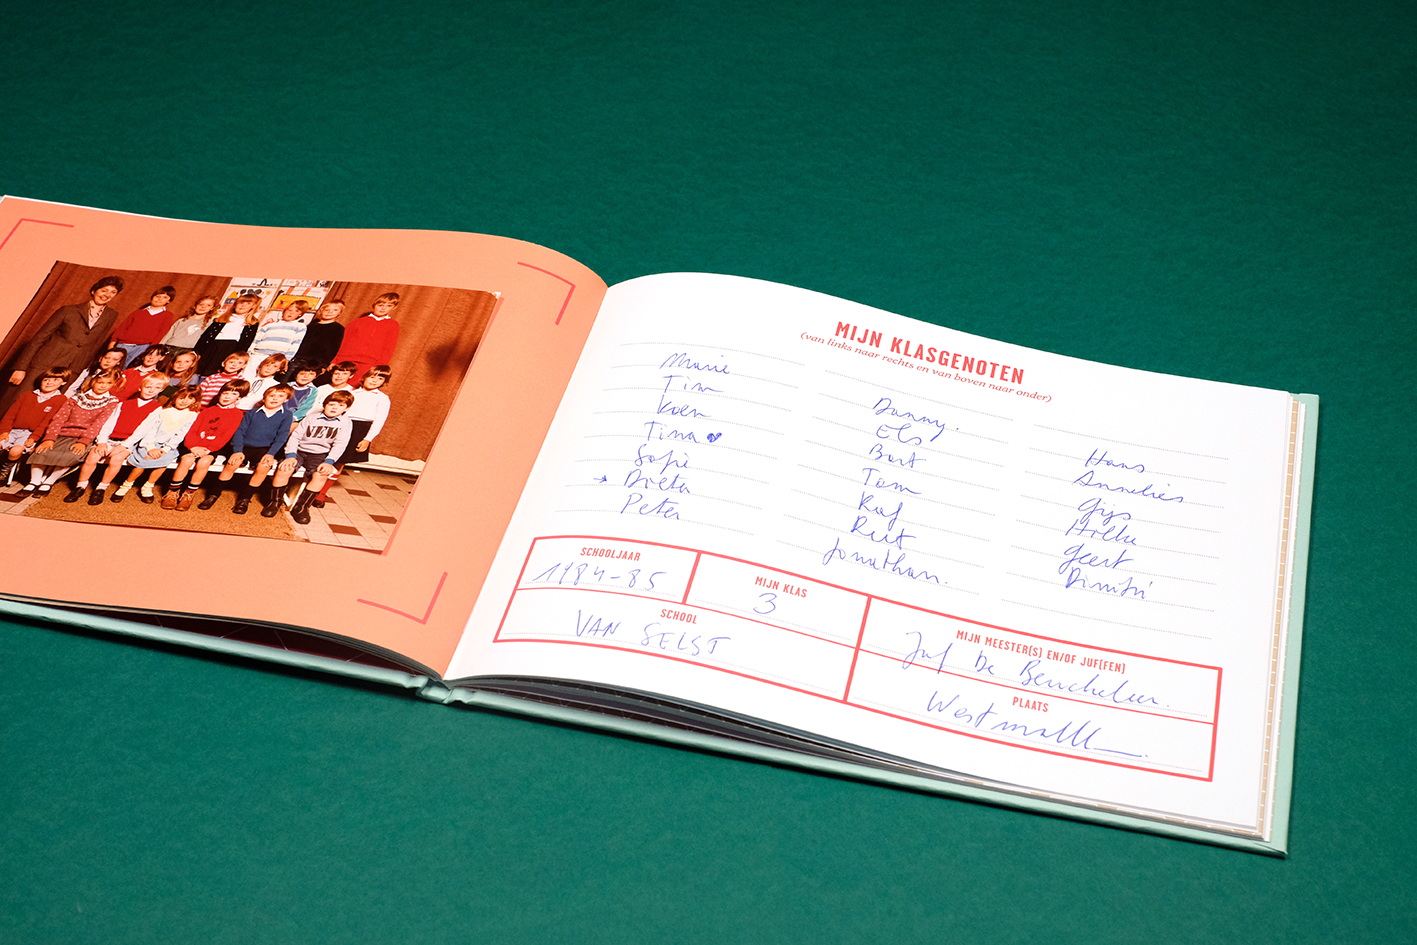 MIJN KLASGENOTEN
(van links naar rechts en van boven naar onder)
Marie
Tim
Koen
Tina ♥
Sofie
→ Dorta
Peter
Danny.
Els
Bart
Tom
Raf
Ruth
Jonathan.
Hans
Annelies
Gijs
Geert
Dimitri
SCHOOLJAAR
1984-85
MIJN KLAS
3
SCHOOL
VAN SELST
MIJN MEESTER(S) EN/OF JUF(FEN)
Juf De Beuckeleer.
PLAATS
Westmalle.
NEW